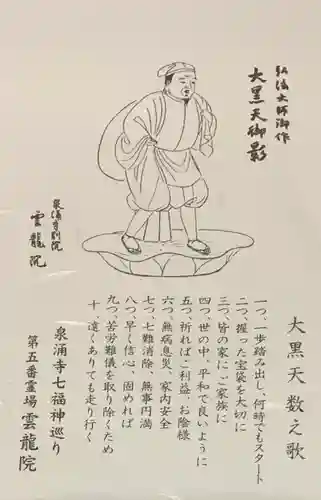 弘法大師御作
大黒天御影
泉涌寺別院
雲龍院
大黒天数之歌
一つ、一歩踏み出し、何時でもスタート
二つ、握った宝袋を大切に
三つ、皆の家に、ご家族に
四つ、世の中、平和で良いように
五つ、祈ればご利益、お陰様
六つ、無病息災、家内安全
七つ、七難消除、無事円満
八つ、早く信心、固めれば
九つ、苦労難儀を取り除くため
十、遠くありても走り行く
泉涌寺七福神巡り
第五番霊場 雲龍院